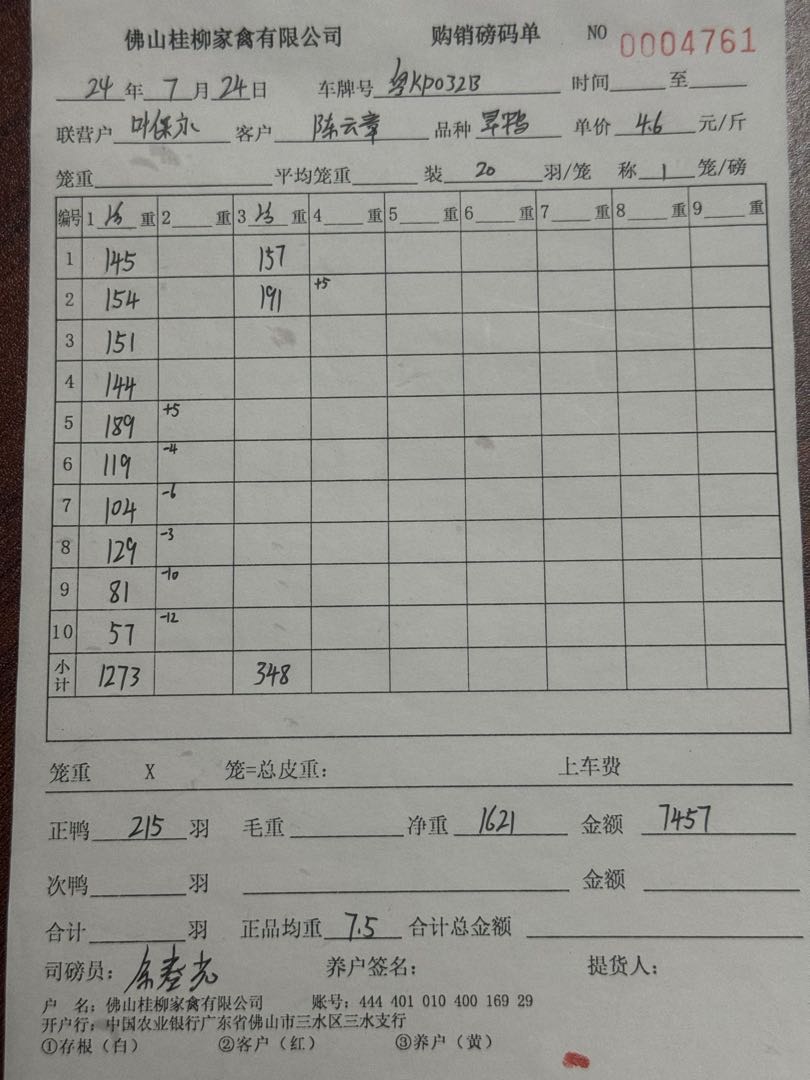 佛山桂柳家禽有限公司 购销磅码单 NO 0004761
24年7月24日 车牌号 粤KP032B 时间 至
联营户 叶保水 客户 陈云章 品种 旱鸭 单价 4.6 元/斤
笼重 平均笼重 装 20 羽/笼 称 1 笼/磅
编号 1 重 2 重 3 重 4 重 5 重 6 重 7 重 8 重 9 重
1 145 157
2 154 191 +5
3 151
4 144
5 189 +5
6 119 -4
7 104 -6
8 129 -3
9 81 -10
10 57 -12
小计 1273 348
笼重 X 笼=总皮重: 上车费
正鸭 215 羽 毛重 净重 1621 金额 7457
次鸭 羽 金额
合计 羽 正品均重 7.5 合计总金额
司磅员: 养户签名: 提货人:
户 名: 佛山桂柳家禽有限公司 账号: 444 401 010 400 169 29
开户行: 中国农业银行广东省佛山市三水区三水支行
①存根（白） ②客户（红） ③养户（黄）